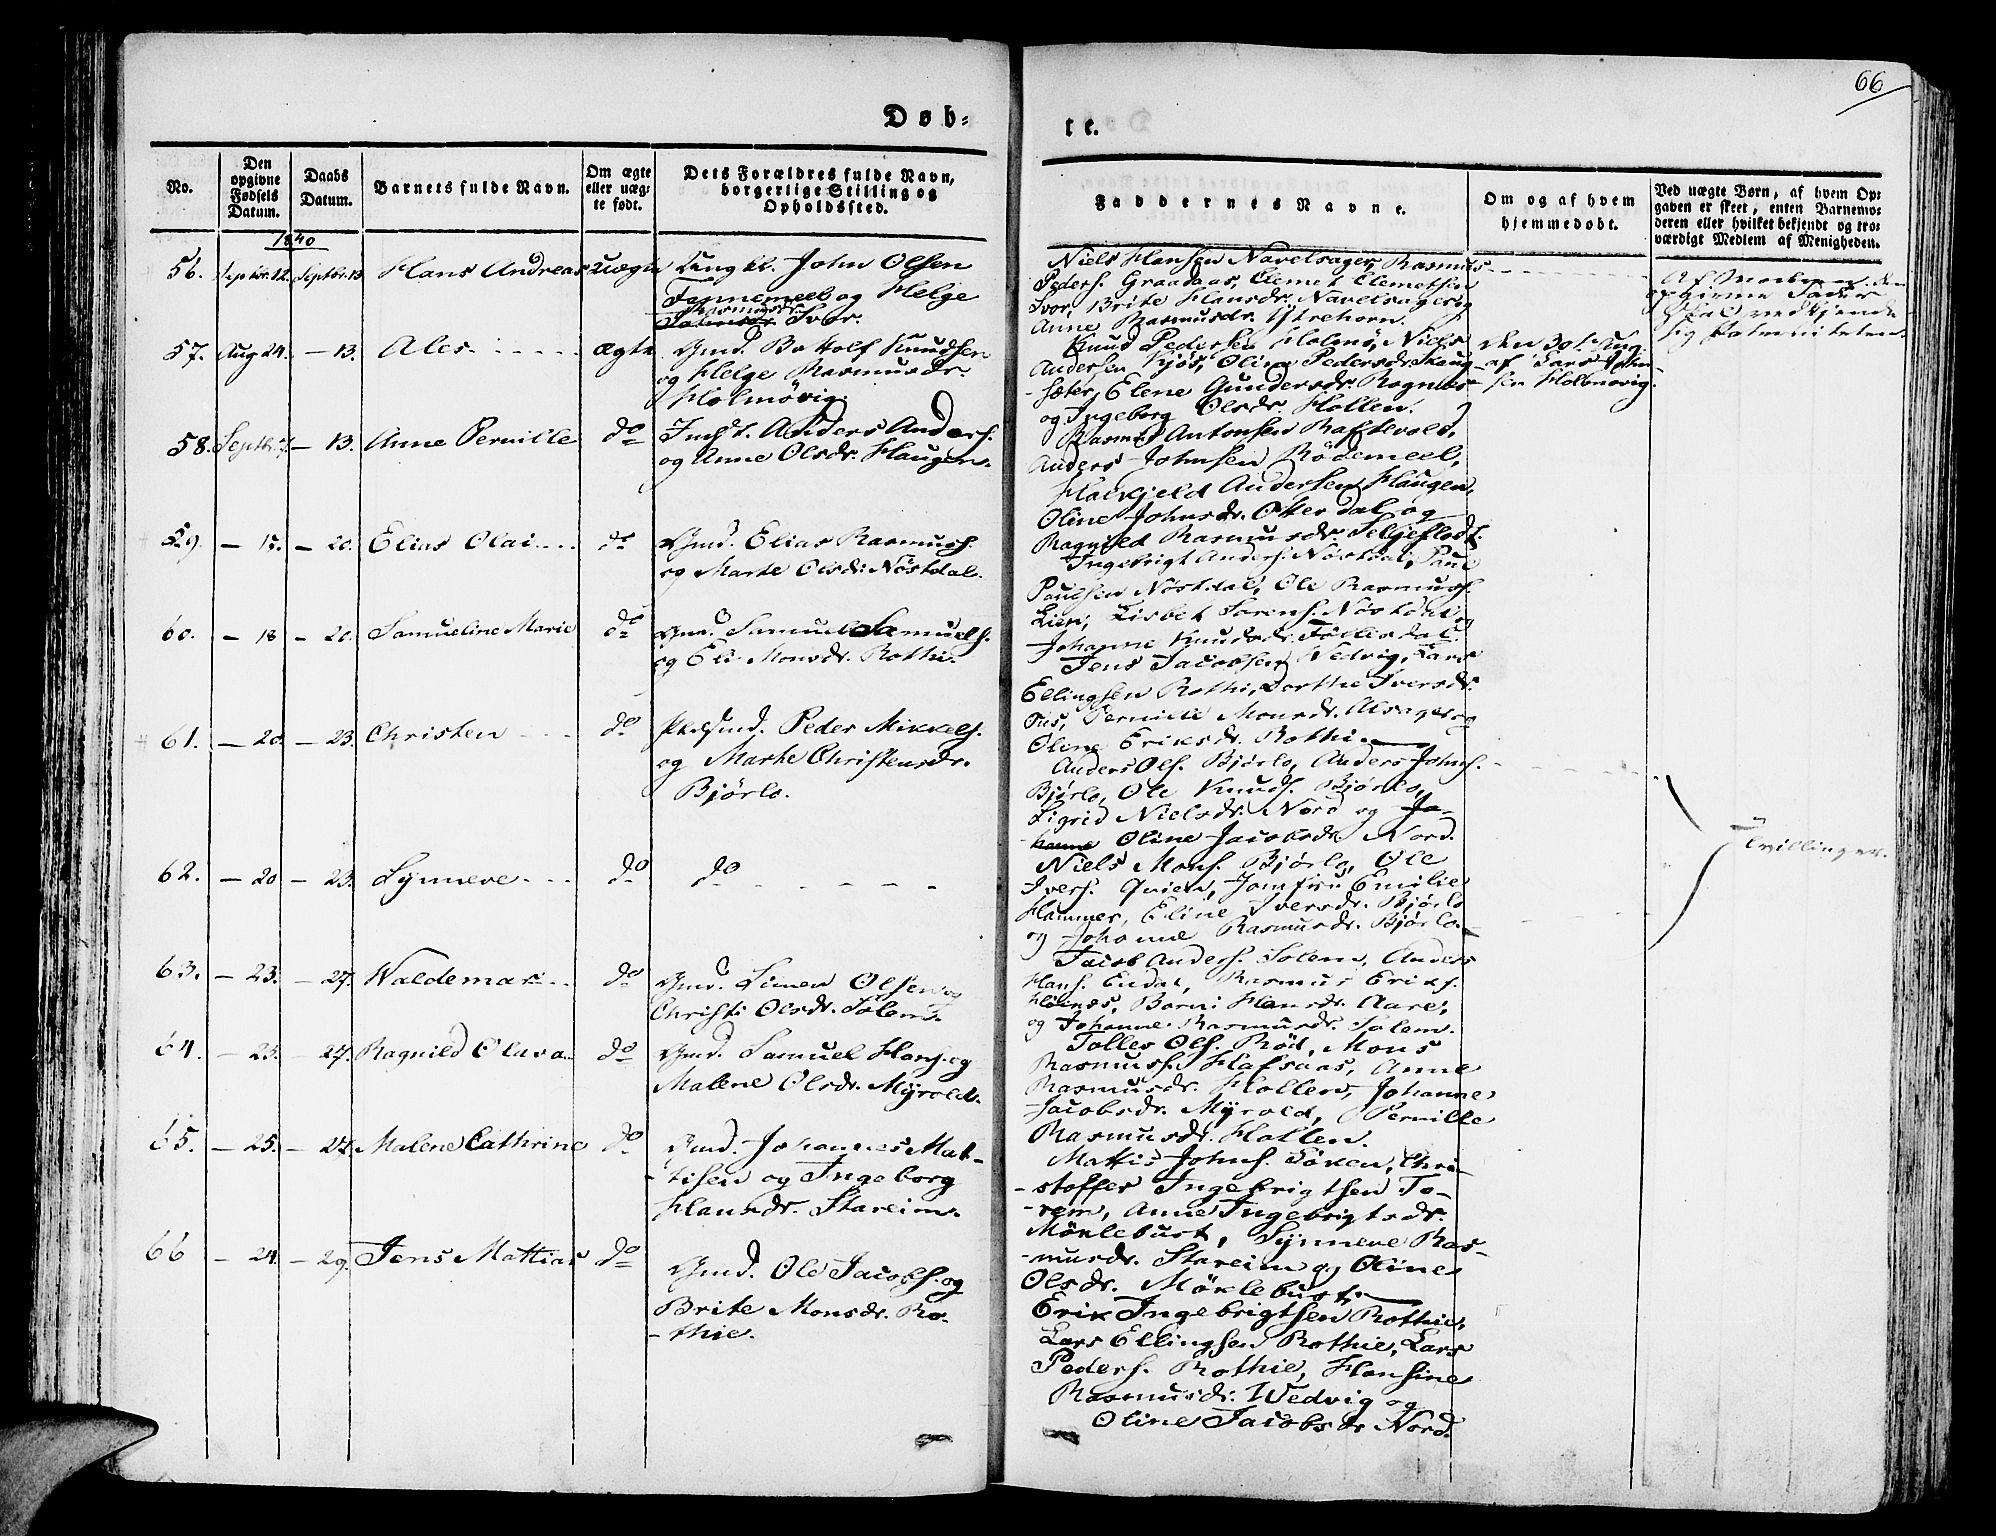 66
Døb-
te.
No.
Den opgivne Fødsels Datum.
Daabs Datum.
Barnets fulde Navn.
Om ægte eller uægte født.
Dets Forældres fulde Navn, borgerlige Stilling og Opholdssted.
Faddernes Navne.
Om og af hvem hjemmedøbt.
Ved uægte Børn, af hvem Opgaven er skeet, enten Barnemoderen eller hvilket bekjendt og troværdigt Medlem af Menigheden.
1840
56. Septbr. 12. Septbr. 13. Hans Andreas uægte Ungkl. John Olsen
og Helge
Rasmusdr.
Niels Hansen Navelsager, Rasmus
Peders. Graadaas, Clemet Clemetsen
Brite Hansdr. Navelsager og
Anne Rasmusdr. Ytrehorn.
opgivne Fader
skal vedkjende
sig Paterniteten.
57. Aug 24. – 13. Ales ægte Gmd. Bottolf Knudsen
og Helge Rasmusdr.
Holmövig.
Knud Pedersen Holmö, Niels
Andersen Kjös, Oline Pedersdr. Skaug-
-sæter, Elene Gundersdr. Rognæs
og Ingeborg Olsdr. Hollen.
den 30te Aug.
af Lars John-
sen Holmövig.
58. Septbr. – 13. Anne Pernille do Indst. Anders Anders.
og Anne Olsdr. Haugen.
Rasmus Antonsen Raftevold,
Anders Johnsen Rödemeel,
Halkjeld Andersen Haugen,
Oline Johnsdr. Otterdal og
Ragnild Rasmusdr. Seljeflodt.
59. – 15. – 20. Elias Olai do Gmd. Elias Rasmuss.
og Marte Olsdr. Nöstdal.
Ingebrigt Anders. Nöstdal, Paul
Paulsen Nöstdal, Ole Rasmuss.
Lien, Lisbet Sörens. Nöstdal og
Johanne Knudsdr. Töllesdal.
60. – 18 – 20. Samueline Marie do Gmd. Samuel Samuels.
og Eli Monsdr. Rothi.
Jens Jacobsen Wedvig, Lars
Ellingsen Rothi, Dorthe Iversdr.
Pernille Monsdr. Alsager og
Oline Eriksdr. Rothi.
61. – 20. – 23. Christen do Pladsmd. Peder Mikkels.
og Marte Christensdr.
Bjørlo.
Anders Ols. Bjørlo, Anders Johns.
Bjørlo, Ole Knuds. Bjørlo,
Sigrid Nielsdr. Nord og Jo-
-hanne Oline Jacobsdr. Nord.
Tvillinger.
62. – 20 – 23. Synneve do do
Niels Mons. Bjørlo, Ole
Ivers. Qvien, Jomfru Emilie
Hammer, Eline Iversdr. Bjørlo
og Johanne Rasmusdr. Bjørlo.
63. – 23. – 27. Waldemar do Gmd. Simen Olsen og
Christi Olsdr. Solem.
Jacob Anders. Solem, Anders
Hans. Endal, Rasmus Eriks.
Hölnæs, Barni Hansdr. Aare,
og Johanne Rasmusdr. Solem.
64. – 23. – 27. Ragnild Olava do Gmd. Samuel Hans. og
Malene Olsdr. Myrold.
Tolles Ols. Röd, Mons
Rasmuss. Hafsaas, Anne
Rasmusdr. Hollen, Johanne
Jacobsdr. Myrold, Pernille
Rasmusdr. Hollen.
65. – 25. – 27. Malene Cathrine do Gmd. Johannes Mat-
-tisen og Ingeborg
Hansdr. Stareim.
Mattis Johns. Töken, Chri-
-stoffer Ingebrigtsen To-
-rem, Anne Ingebrigtsdr.
Möklebust, Synneve Ras-
-musdr. Stareim og Oline
Olsdr. Möklebust.
66 – 24. – 29. Jens Mattias do Gmd. Ole Jacobs. og
Brite Monsdr. Ro-
-thie.
Erik Ingebrigtsen Rothie,
Lars Ellingsen Rothie, Lars
Peders. Rothie, Hansine
Rasmusdr. Wedvig og
Oline Jacobsdr Nord.